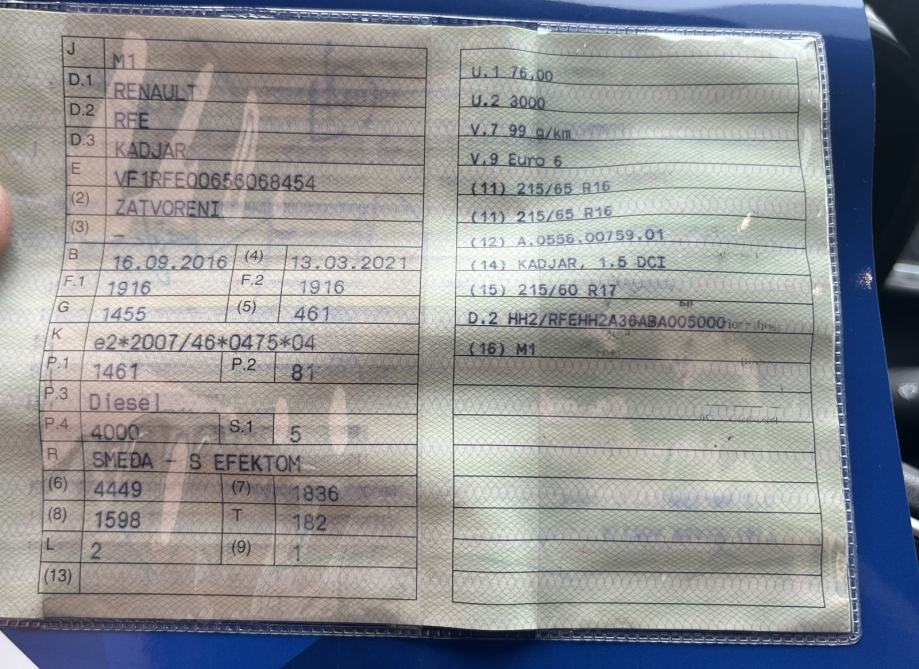 J M1
D.1 RENAULT
D.2 RFE
D.3 KADJAR
E VF1RFE00656068454
(2) ZATVORENI
(3) -
B 16.09.2016 (4) 13.03.2021
F.1 1916 F.2 1916
G 1455 (5) 461
K e2*2007/46*0475*04
P.1 1461 P.2 81
P.3 Diesel
P.4 4000 S.1 5
R SMEĐA - S EFEKTOM
(6) 4449 (7) 1836
(8) 1598 T 182
L 2 (9) 1
(13)
U.1 76,00
U.2 3000
V.7 99 g/km
V.9 Euro 6
(11) 215/65 R16
(11) 215/65 R16
(12) A.0556.00759.01
(14) KADJAR, 1.5 DCI
(15) 215/60 R17
D.2 HH2/RFEHH2A36ABA005000
(16) M1